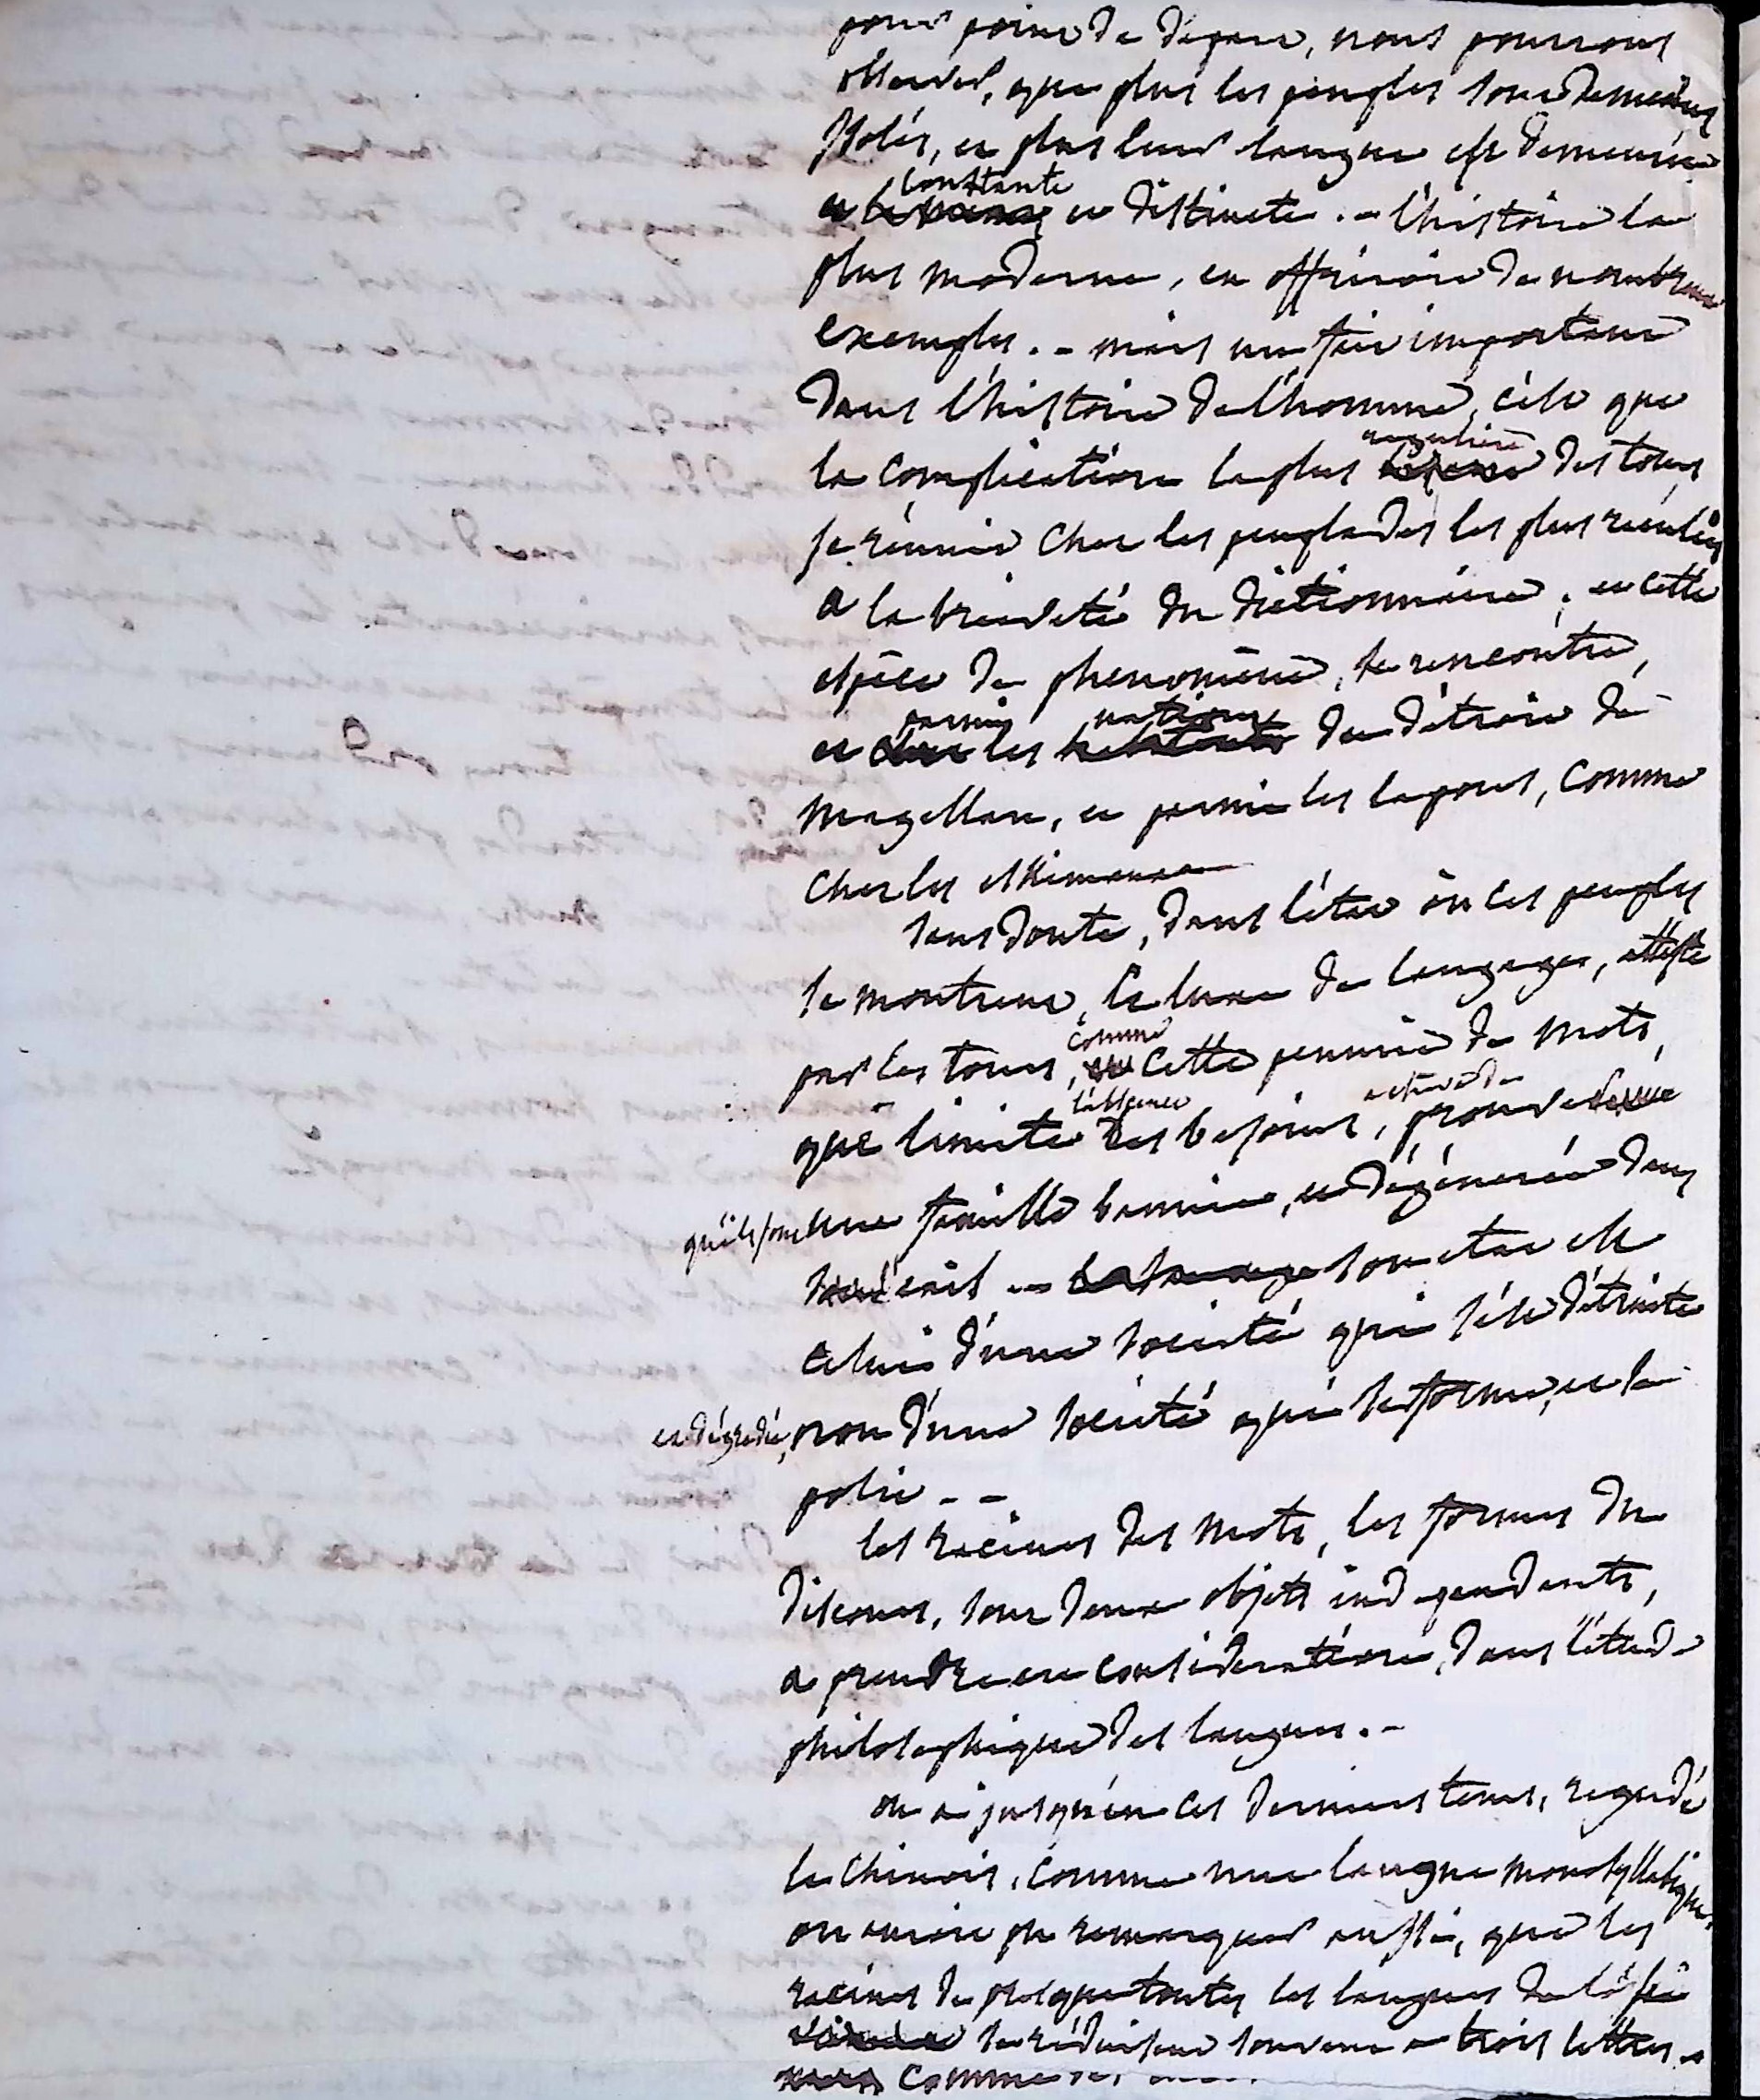 pour point de depart, nous pourrons
observer, que plus les peuples sont demeurés
isolés, et plus leur langue est demeurée
constante
et distincte. - l'histoire la
plus moderne, en offriroit de nombreux
exemples. - mais un fait important
dans l'histoire de l'homme, c'est que
la complication la plus régulière des tours
se réunit chez les peuplades les plus reculées
a la brieveté du dictionnaire ; et cette
espèce de phenomène, se rencontre,
parmi nations
et les du détroit de
magellan, et parmi les lapons, comme
chez les eskimaux
sans doute, dans l'état où ces peuples
se montrent, le luxe de langage, attesté
comme
par les tours, cette penurie de mots,
l'absence
que limite des besoins, prouve
qu'ils sont une famille bannie, et dégénerée dans
exil - son etat est
celui d'une société qui s'est détruite
et dégradée, non d'une société qui se forme, et se
polit - -
les racines des mots, les formes du
discours, sont deux objets independants,
a prendre en consideration, dans l'étude
philosophique des langues. -
on a jusqu'en ces derniers tems, regardé
le chinois, comme une langue monosyllabique.
on auroit pu remarquer aussi, que les
racines de presque toutes les langues de l'asie
se réduisent souvent a trois lettres.
comme